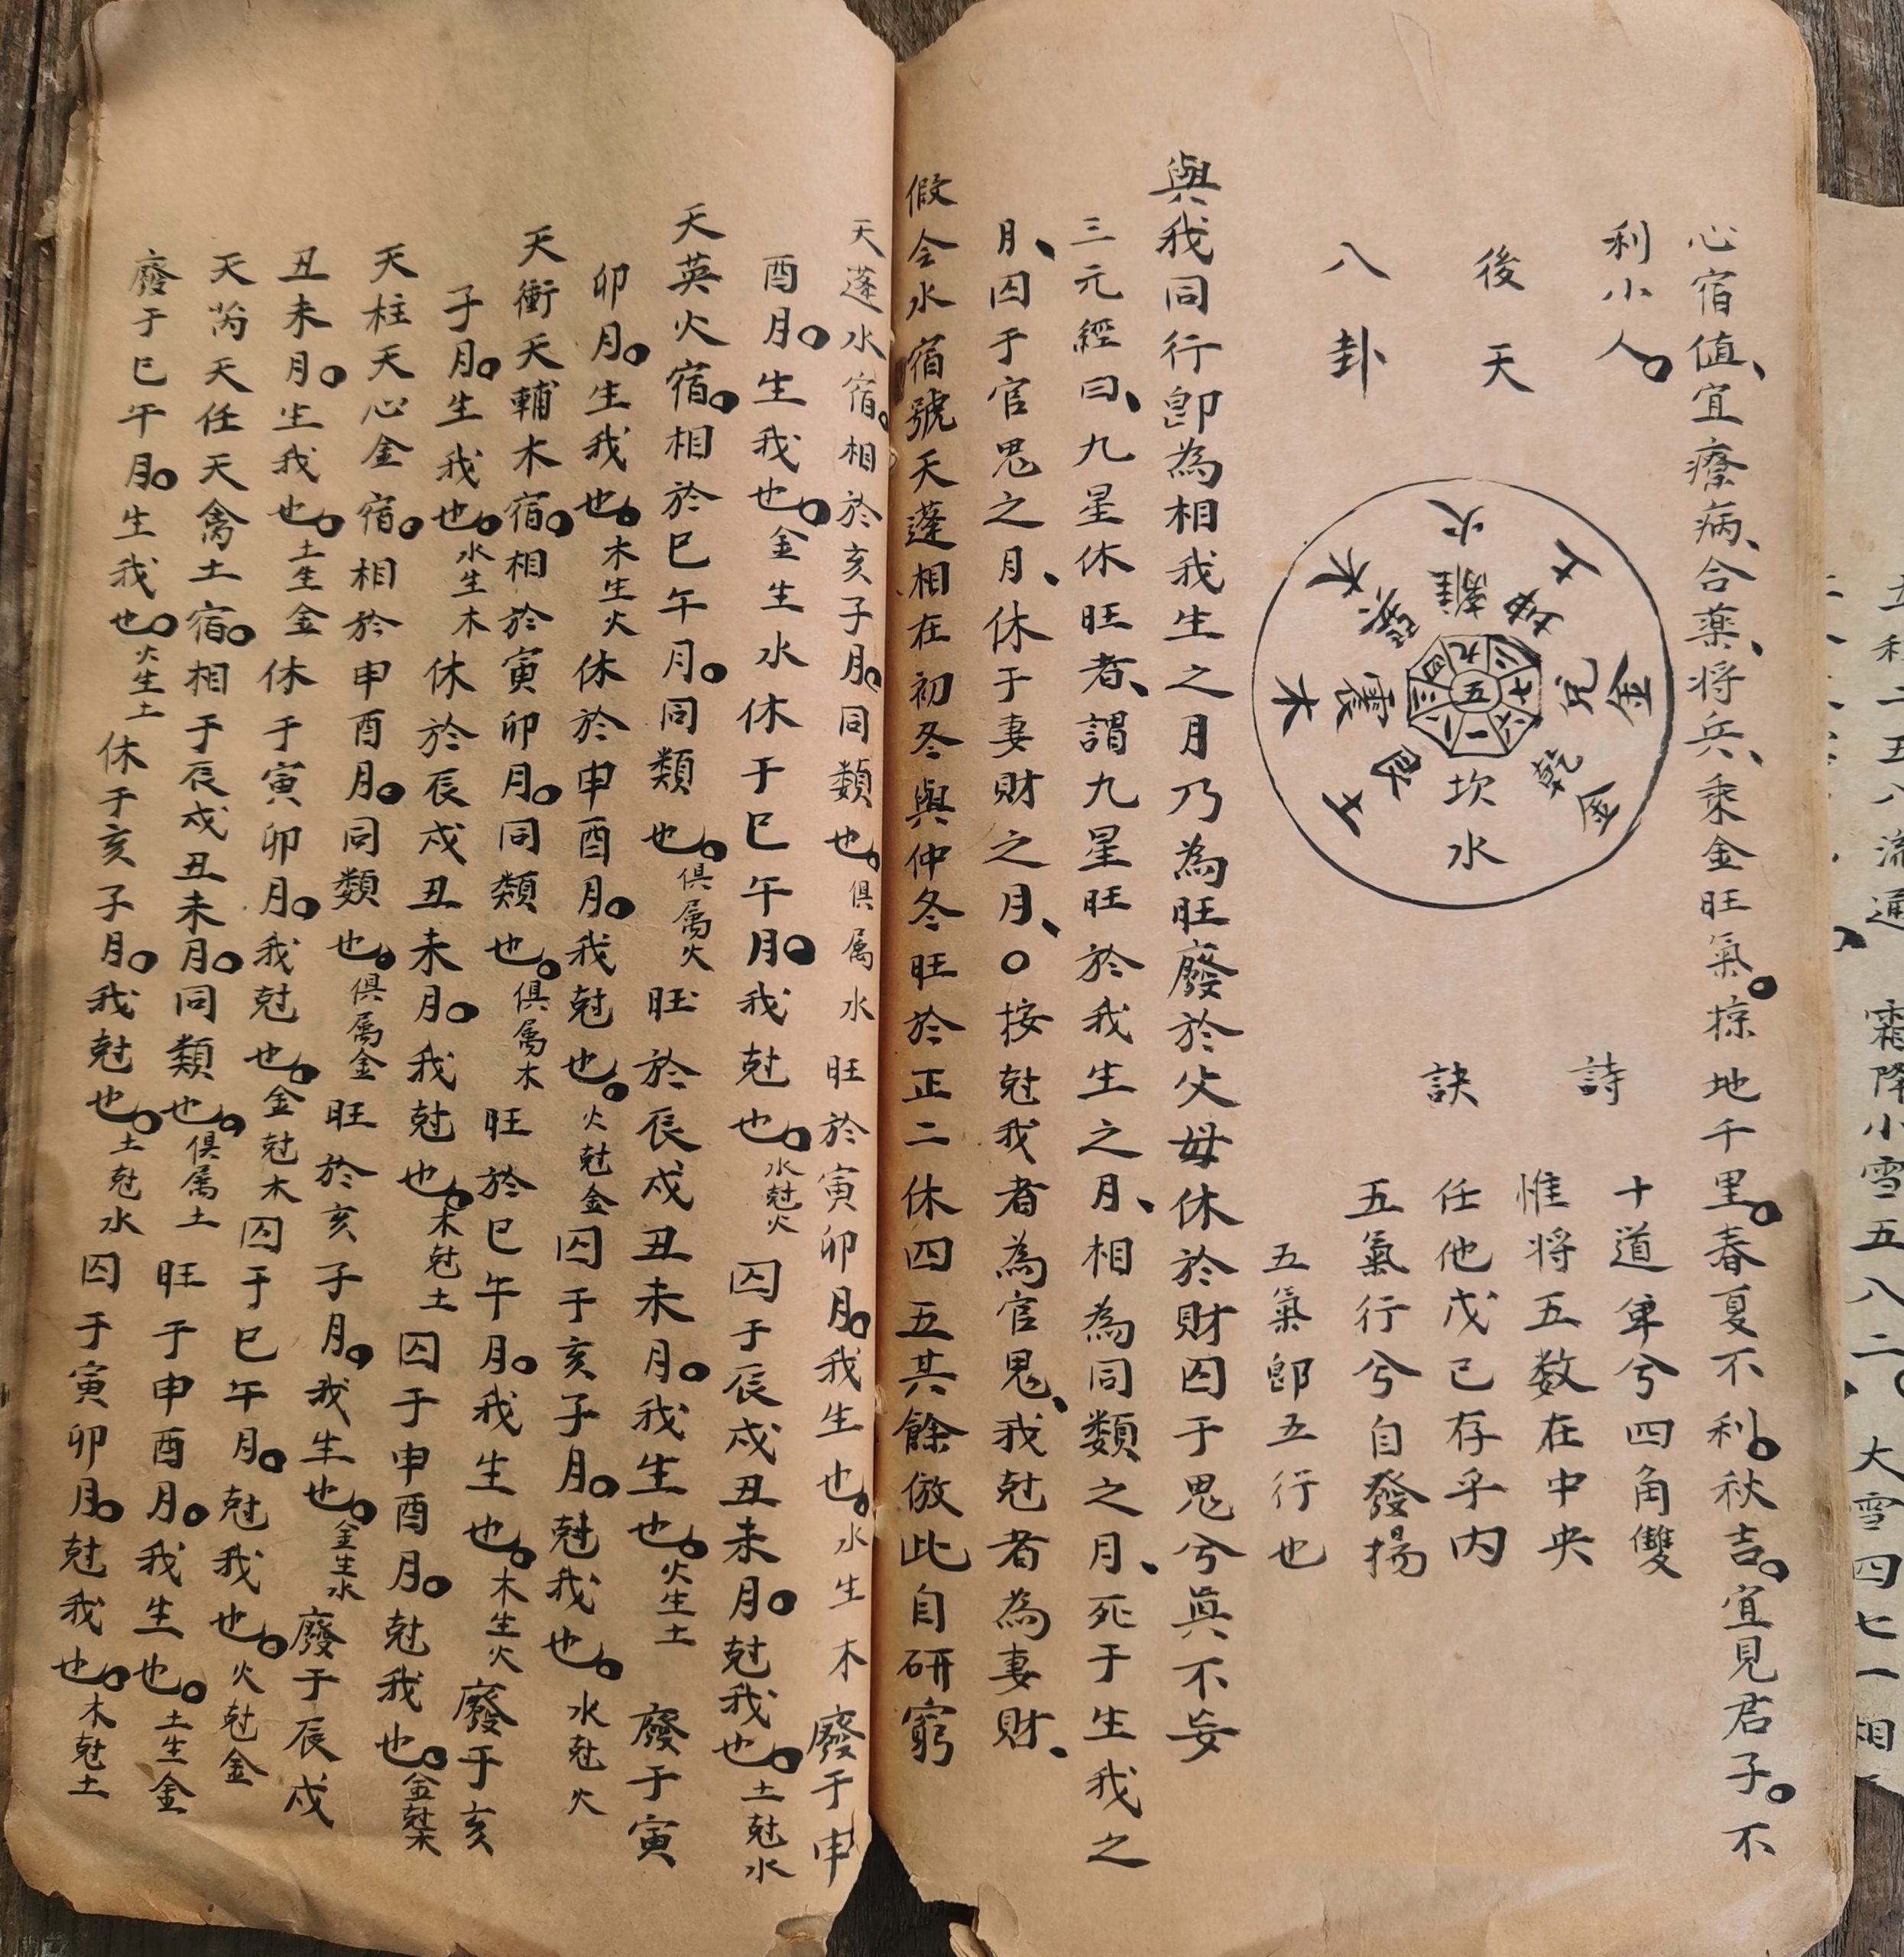 心宿值、宜療病、合藥、將兵、乘金旺氣。掠地千里。春夏不利。秋吉。宜見君子。不
利小人。
後天
八卦
離
火
坤
土
兌
金
乾
金
坎
水
艮
土
震
木
巽
木
九
二
七
六
一
八
三
四
五
詩
訣
十道年兮四角雙
惟將五数在中央
任他戊己存乎内
五氣行兮自發揚
五氣即五行也
與我同行卽為相我生之月乃為旺廢於父母休於財囚于鬼兮眞不妄
三元經曰、九星休旺者、謂九星旺於我生之月、相為同類之月、死于生我之
月、囚于官鬼之月、休于妻財之月、○按尅我者為官鬼、我尅者為妻財、
假令水宿號天蓬相在初冬與仲冬旺於正二休四五其餘倣此自研窮
天蓬水宿。相於亥子月。同類也。俱属水 旺於寅卯月。我生也。水生木 廢于申
酉月。生我也。金生水 休于巳午月。我尅也。水尅火 囚于辰戌丑未月。尅我也。土尅水
天英火宿。相於巳午月。同類也。俱属火 旺於辰戌丑未月。我生也。火生土 廢于寅
卯月。生我也。木生火 休於申酉月。我尅也。火尅金 囚于亥子月。尅我也。水尅火
天衝天輔木宿。相於寅卯月。同類也。俱属木 旺於巳午月。我生也。木生火 廢于亥
子月。生我也。水生木 休於辰戌丑未月。我尅也。木尅土 囚于申酉月。尅我也。金尅木
天柱天心金宿。相於申酉月。同類也。俱属金 旺於亥子月。我生也。金生水 廢于辰戌
丑未月。生我也。土生金 休于寅卯月。我尅也。金尅木 囚于巳午月。尅我也。火尅金
天芮天任天禽土宿。相于辰戌丑未月。同類也。俱属土 旺于申酉月。我生也。土生金
廢于巳午月。生我也。火生土 休于亥子月。我尅也。土尅水 囚于寅卯月。尅我也。木尅土